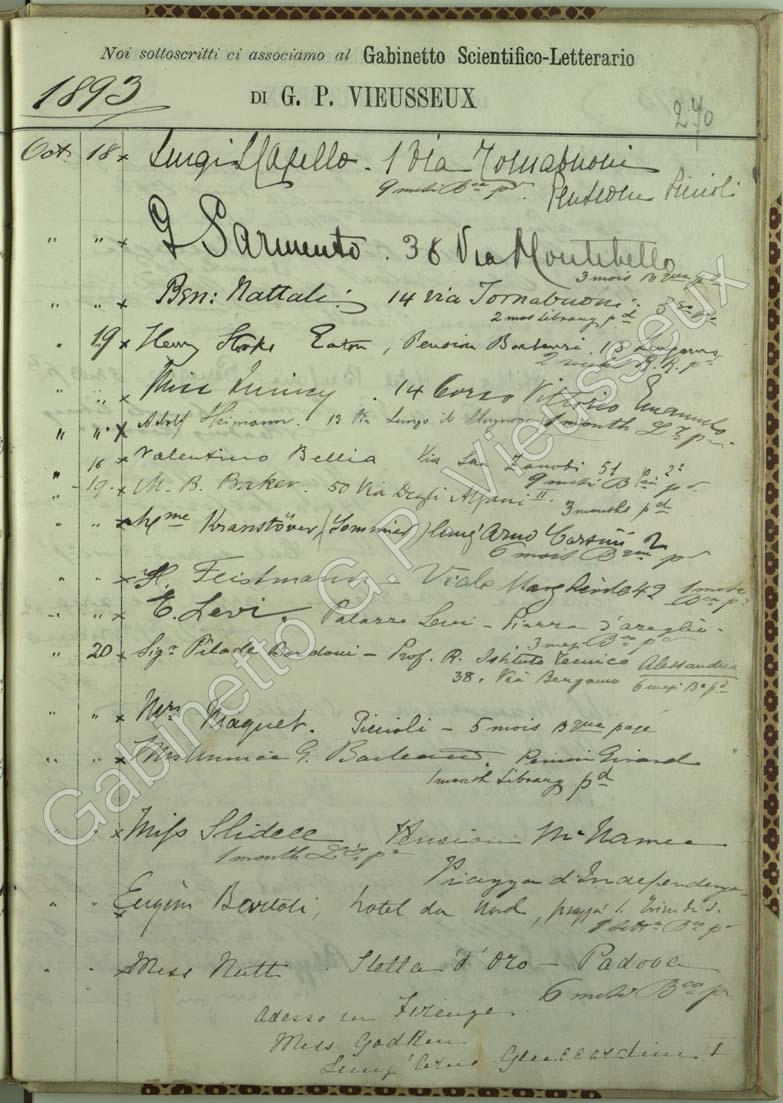 Noi sottoscritti ci associamo al Gabinetto Scientifico-Letterario
1893
DI G. P. VIEUSSEUX
270
Oct. 18 x Luigi Capello. 1 Via Tornabuoni
9 mesi Bca pd. Pensione Piccioli
" " x G Sarmento. 38 Via Montebello
3 mois Bque
" " x Ben: Nattali: 14 via Tornabuoni
2 mos library pd
" 19 x Henry Stooks Eaton, Pension Barbensi, 13 Lungarno
2 R.R. pd
" " x Miss Quincy. 14 Corso Vittorio Emanuele
" " x Adolf Heimann. 13 Via Lungo il Mugnone 1 month
" 18 x Valentino Bellia Via San Zanobi 51 p. 2º
9 mesi B pd
" 19 x M. B. Baker. 50 Via Degli Alfani II.
3 months pd
" " x Mme Kranstöver (Sommier) Lung'Arno Corsini 2
6 mois Bque pd
" " x H. Feistmann Viale Margherita 42 1 mese
Bca pd
" " x E. Levi. Palazzo Levi - Piazza d'Azeglio -
3 mesi Bca pd
" 20 x Sigr Pilade Bordoni - Prof. R. Istituto Tecnico Alessandria
38. Via Bergamo 6 mesi Ba pd
" " x Mrs Maquet. Piccioli - 5 mois Bque payé
" " x Miss G. Pension Girard
1 month Library pd
" " x Miss Slidell Pension McNamee
1 month pd
Piazza d'Indipendenza
" " x Eugène Bartoli, hotel du Nord, piazza S. Trinità 3.
Bca pd
" " x Miss Nutti Stella d'Oro - Padova
6 mesi Bca pd
adesso in Firenze
Miss Godkin
Lung'Arno Guicciardini 1
Gabinetto G.P. Vieusseux